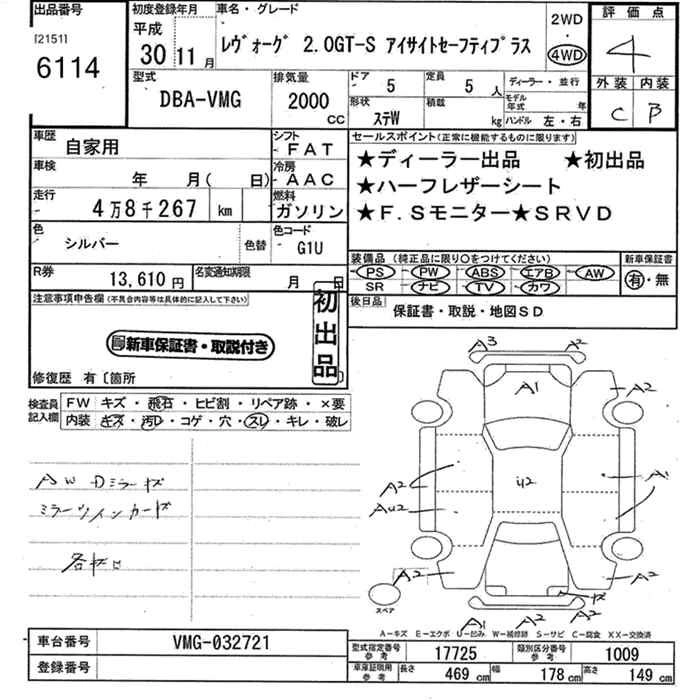 出品番号
[2151]
6114
初度登録年月
平成
30 11月
車名・グレード
レヴォーグ 2.0GT-S アイサイトセーフティプラス
2WD
・
4WD
評価点
4
外装 内装
C B
型式
DBA-VMG
排気量
2000
CC
ドア
5
定員
5 人
形状
ステW
積載
kg
ディーラー・並行
モデル年式 年
ハンドル 左・右
車歴
自家用
シフト
FAT
車検
年 月( 日)
冷房
AAC
走行
4万8千267 km
燃料
ガソリン
色
シルバー
色替
色コード
G1U
R券
13,610円
名変通知期限
月 日
セールスポイント(正常に機能するものに限ります)
★ディーラー出品 ★初出品
★ハーフレザーシート
★F.Sモニター★SRVD
装備品 (純正品に限り○をつけてください)
PS PW ABS エアB AW
SR ナビ TV カワ
新車保証書
有・無
後日品
保証書・取説・地図SD
注意事項申告欄(不具合内容等は具体的に記入して下さい)
初出品
新車保証書・取説付き
修復歴 有〔箇所 〕
検査員記入欄
FW キズ・飛石・ヒビ割・リペア跡・×要
内装 キズ・汚レ・コゲ・穴・スレ・キレ・破レ
AW Dミラーギズ
ミラーウインカーギズ
各ギロ
A3 A2
A1
A2
A2
AU2
U2
A1
A2
A2
ギズ
A1 A2 A2
スペア
A-キズ E-エクボ U-凹み W-補修跡 S-サビ C-腐食 XX-交換済
車台番号
VMG-032721
登録番号
型式指定番号 参考
17725
類別区分番号 参考
1009
車庫証明用 参考
長さ 469 cm 幅 178 cm 高さ 149 cm